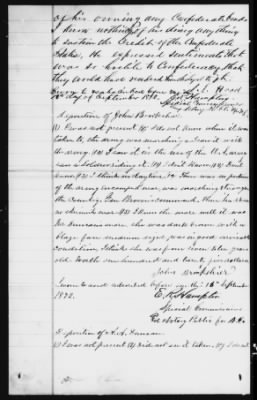 of his owning any Confederate bonds
I know nothing of his doing any thing
to sustain the Credit of the Confederate
States, He expressed sentiments that
was so hostile to Confederacy, that
they would have rendered him
Sworn to & subscribed before me this
15th day of September 1872
Special Commissioner
Deposition of John Brookshire
(1) I was not present (2) I do not know when it was
taken, the army was marching when it with
the army (3) I saw it in the use of the U.S. army
saw a soldier riding it. (4) I don't know (5) I don't
know (6) I think in daytime (7) There was no portion
of the army encamped near, was marching through
the country, Gen Browns command, then
I knew the mare well it was
Mr Duncans mare she was dark brown with a
blaze face medium size, was in good serviceable
condition, I think she was four or five years
old. Worth one hundred and twenty five dollars
John Brookshire
Sworn to and subscribed before me this 15th September
1872.
E. K. Hampton
Special Commissioner
& Notary Public for
Deposition of A. A. Duncan
(1) I was not present (2) I did not see it taken,